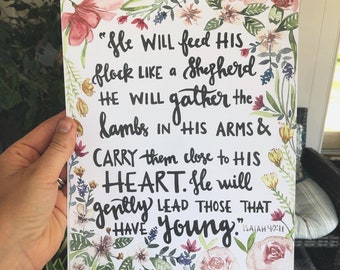 "He WILL feed HIS
flock LIKE a Shepherd
HE WILL gather the
lambs IN HIS ARMS &
CARRY them close to HIS
HEART. He will
gently LEAD THOSE THAT
HAVE Young."
ISAIAH 40:11